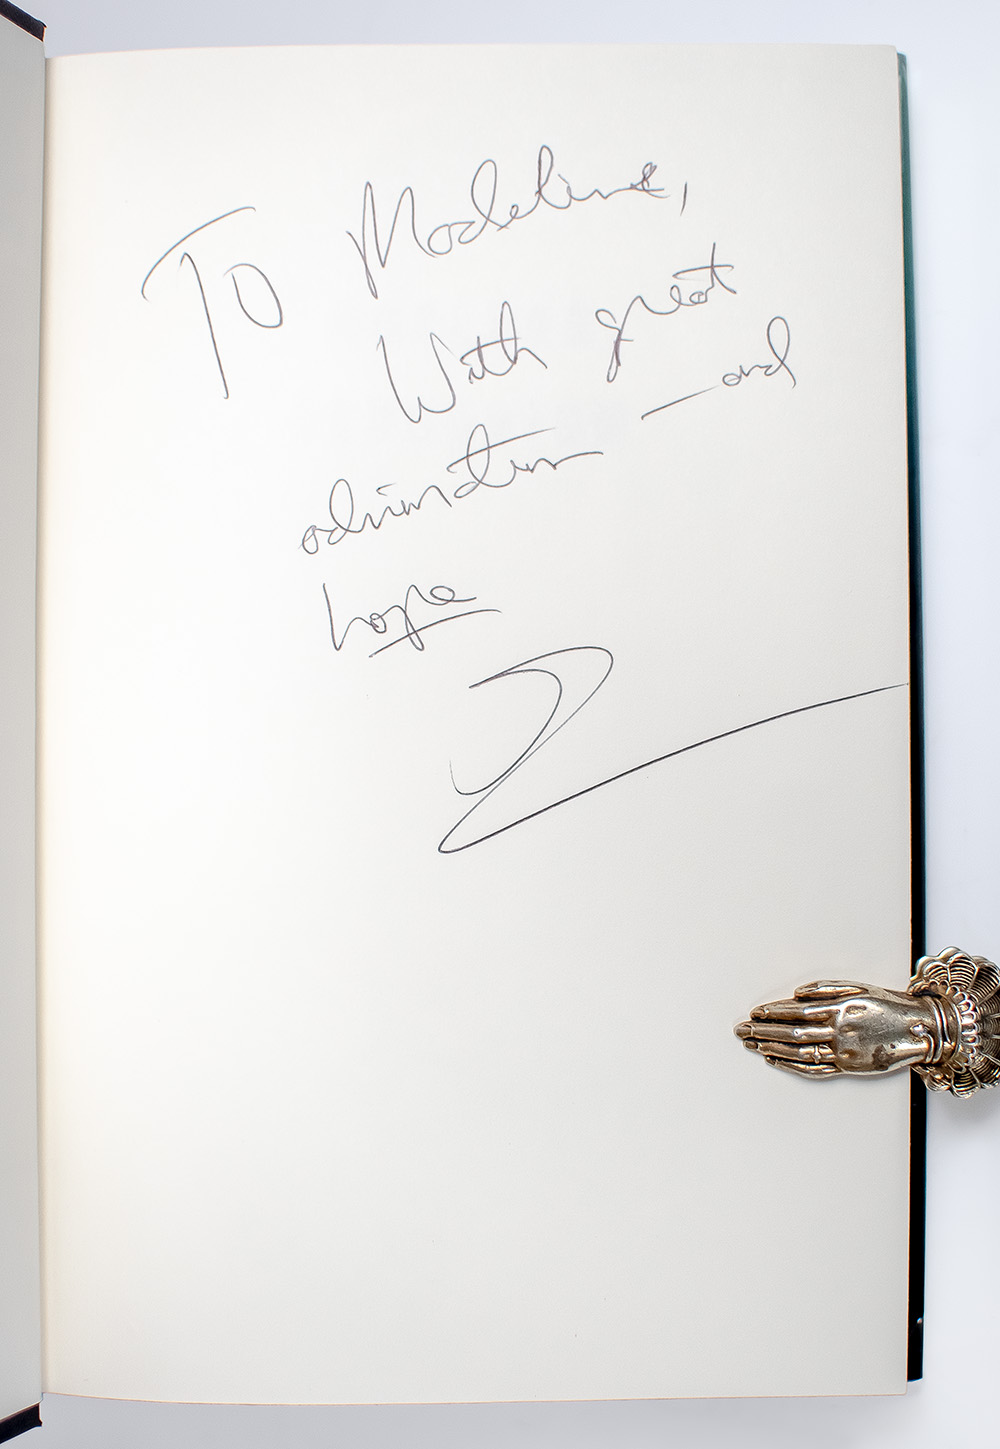 To Madeline,
With great
admiration — and
hope